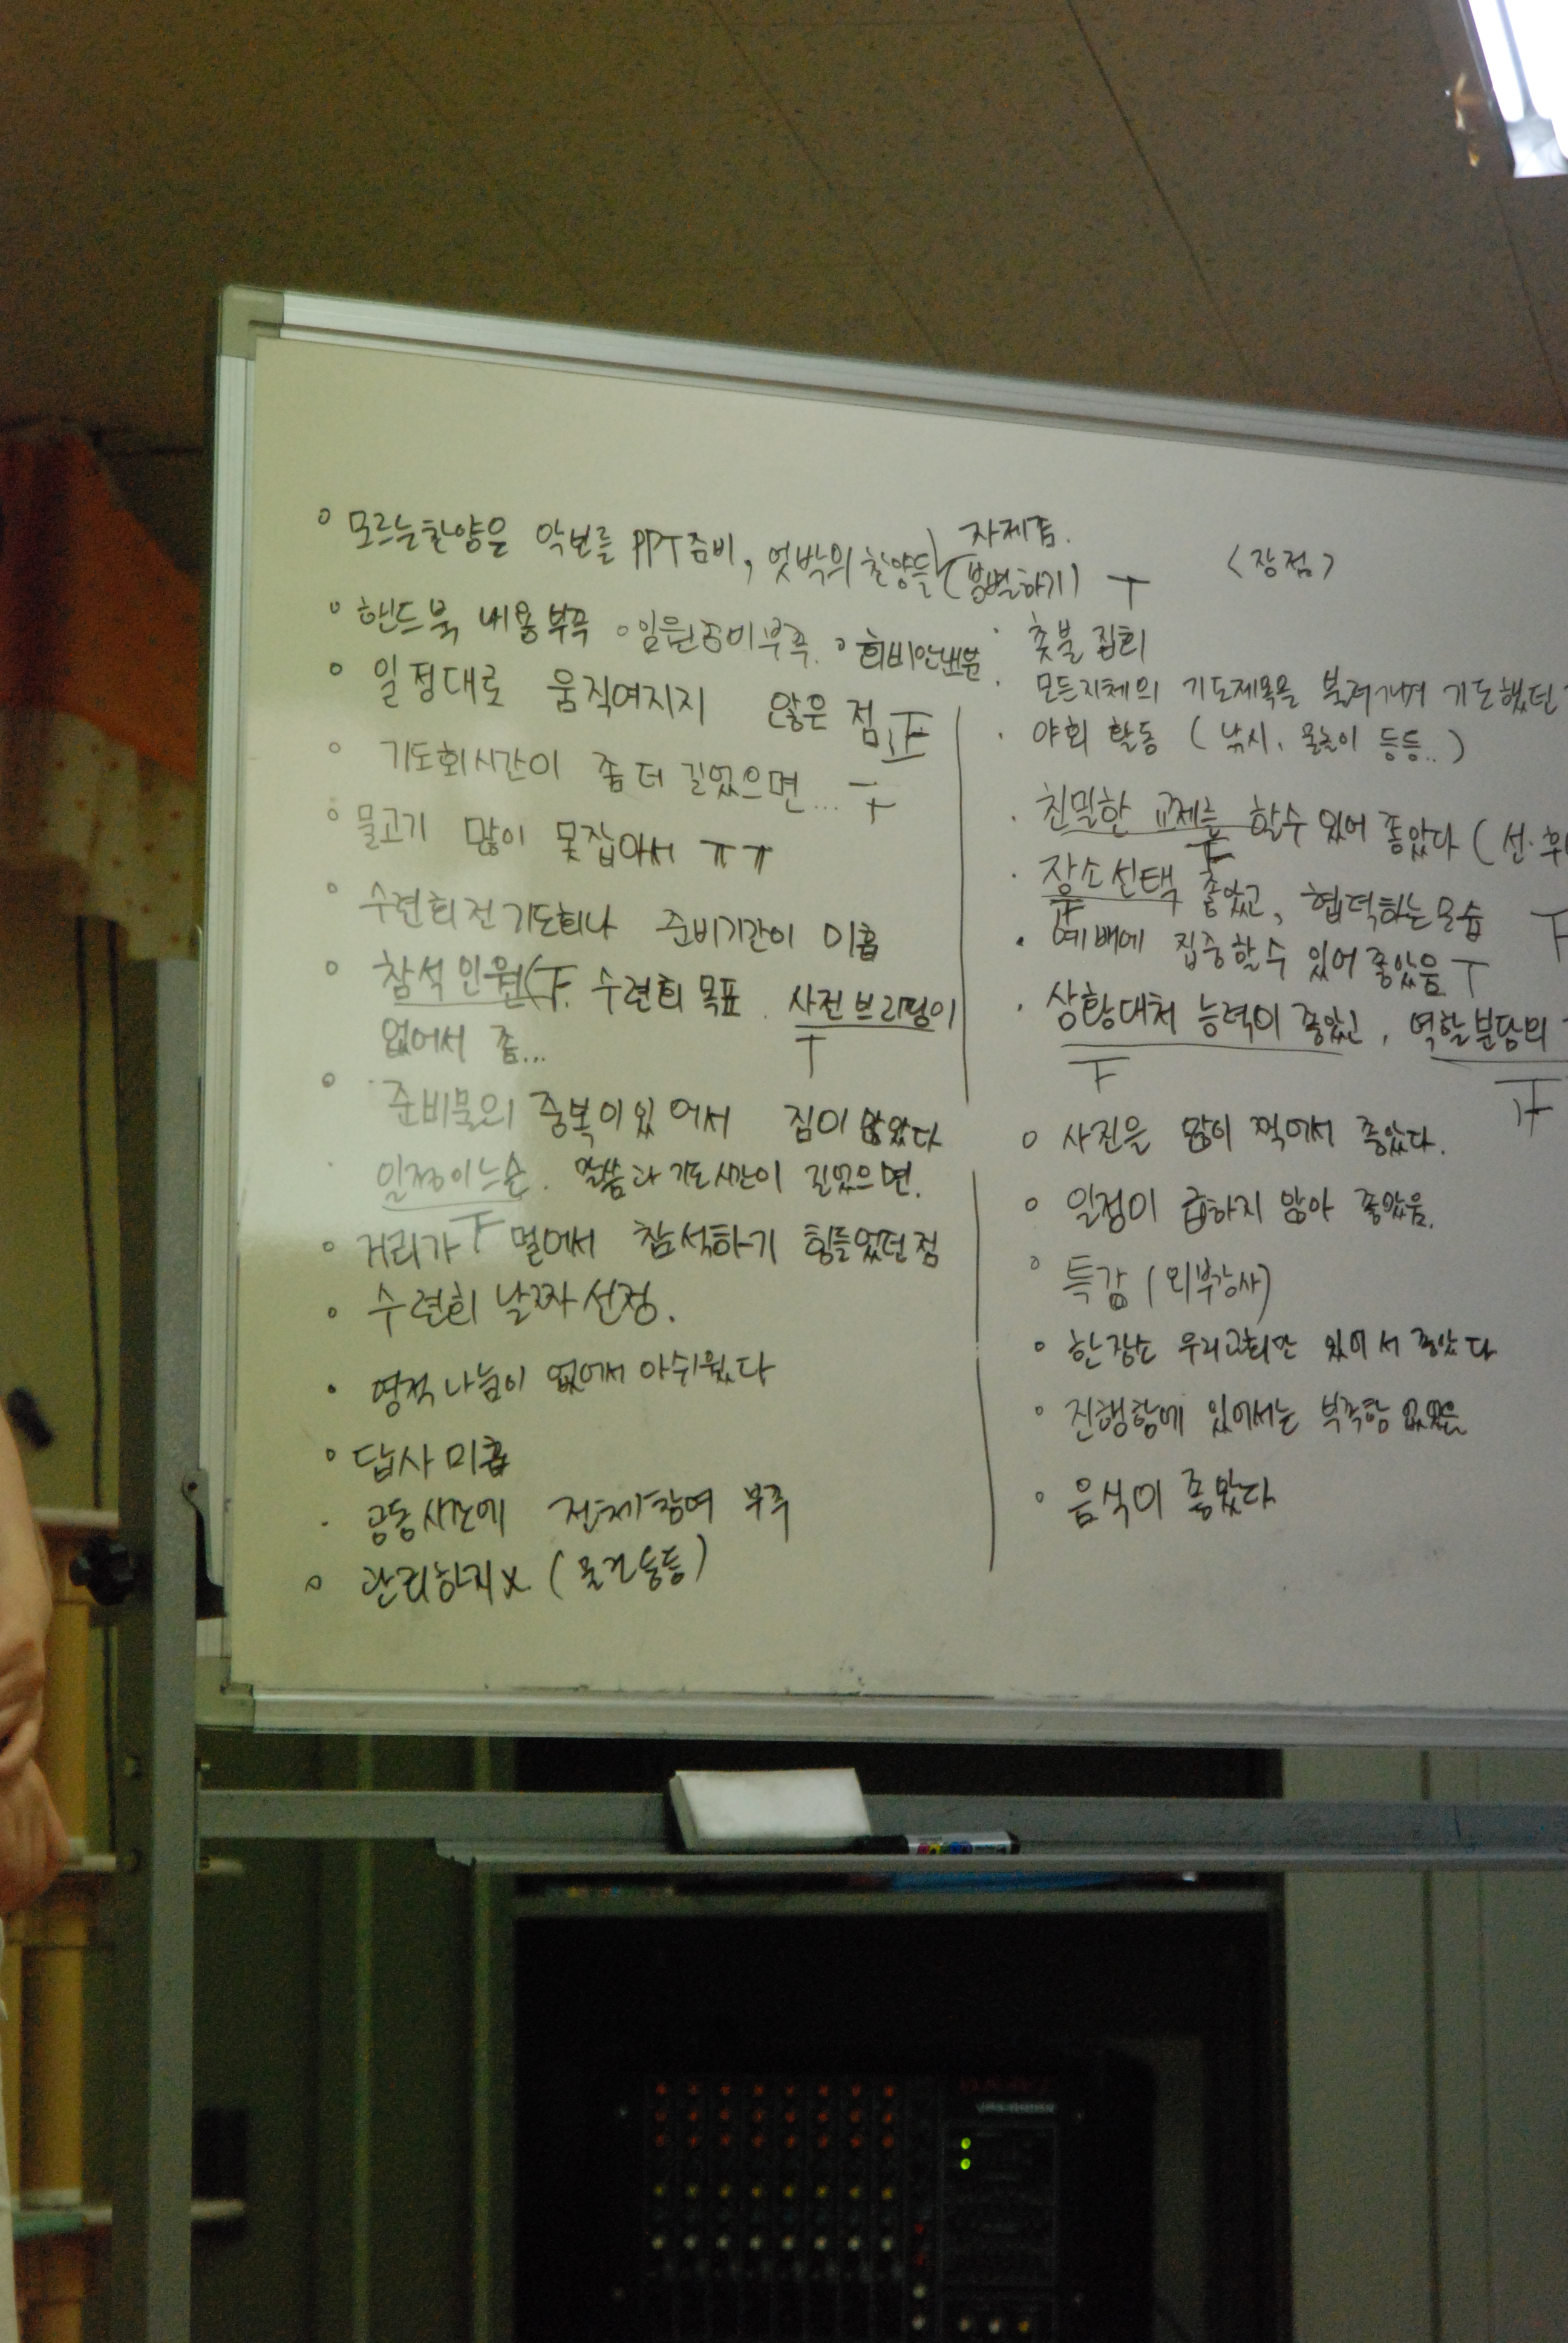 모르는찬양은 악보를 PPT준비, 엇박의 찬양들 (분별하기) 자제좀.
핸드북 내용부족 ◦임원준비부족. ◦회비안내부족
일정대로 움직여지지 않은 점
기도회시간이 좀 더 길었으면...
물고기 많이 못잡아서 ㅠㅠ
수련회전기도회나 준비기간이 미흡
참석인원 수련회목표. 사전브리핑이
없어서 좀...
준비물의 중복이있어서 짐이 많았다
일정이느슨. 말씀과 기도시간이 길었으면.
거리가 멀어서 참석하기 힘들었던점
수련회 날짜선정.
영적나눔이 없어서 아쉬웠다
답사미흡
공동시간에 전체참여 부족
관리하지X (물건등등)
<장점>
촛불집회
모든지체의 기도제목을 불러가며 기도했던
야회 활동 (낚시, 물놀이 등등..)
친밀한 교제를 할수 있어 좋았다 (선·후
장소선택 좋았고, 협력하는모습
예배에 집중할수 있어 좋았음
상황대처 능력이 좋았고, 역할분담의
사진을 많이 찍어서 좋았다.
일정이 급하지 않아 좋았음.
특강 (외부강사)
한장소 우리교회만 있어서 좋았다
진행함에 있어서는 부족함 없었음
음식이 좋았다